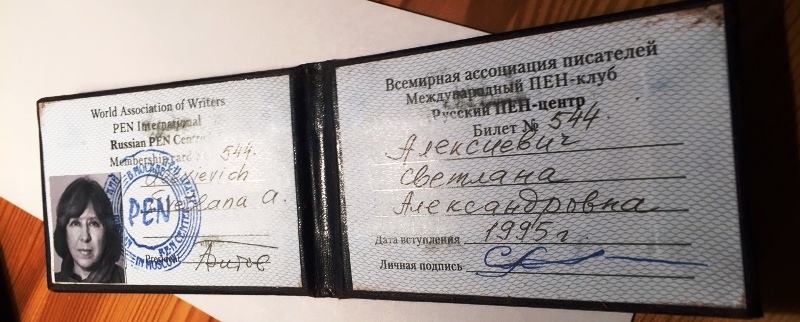 World Association of Writers
PEN International
Russian PEN Centre
Membership card № 544.
Alexievich
Svetlana A.
PEN
IN MOSCOW
PEN CENTER
President
Всемирная ассоциация писателей
Международный ПЕН-клуб
Русский ПЕН-центр
Билет № 544
Алексиевич
Светлана
Александровна
Дата вступления 1995 г.
Личная подпись